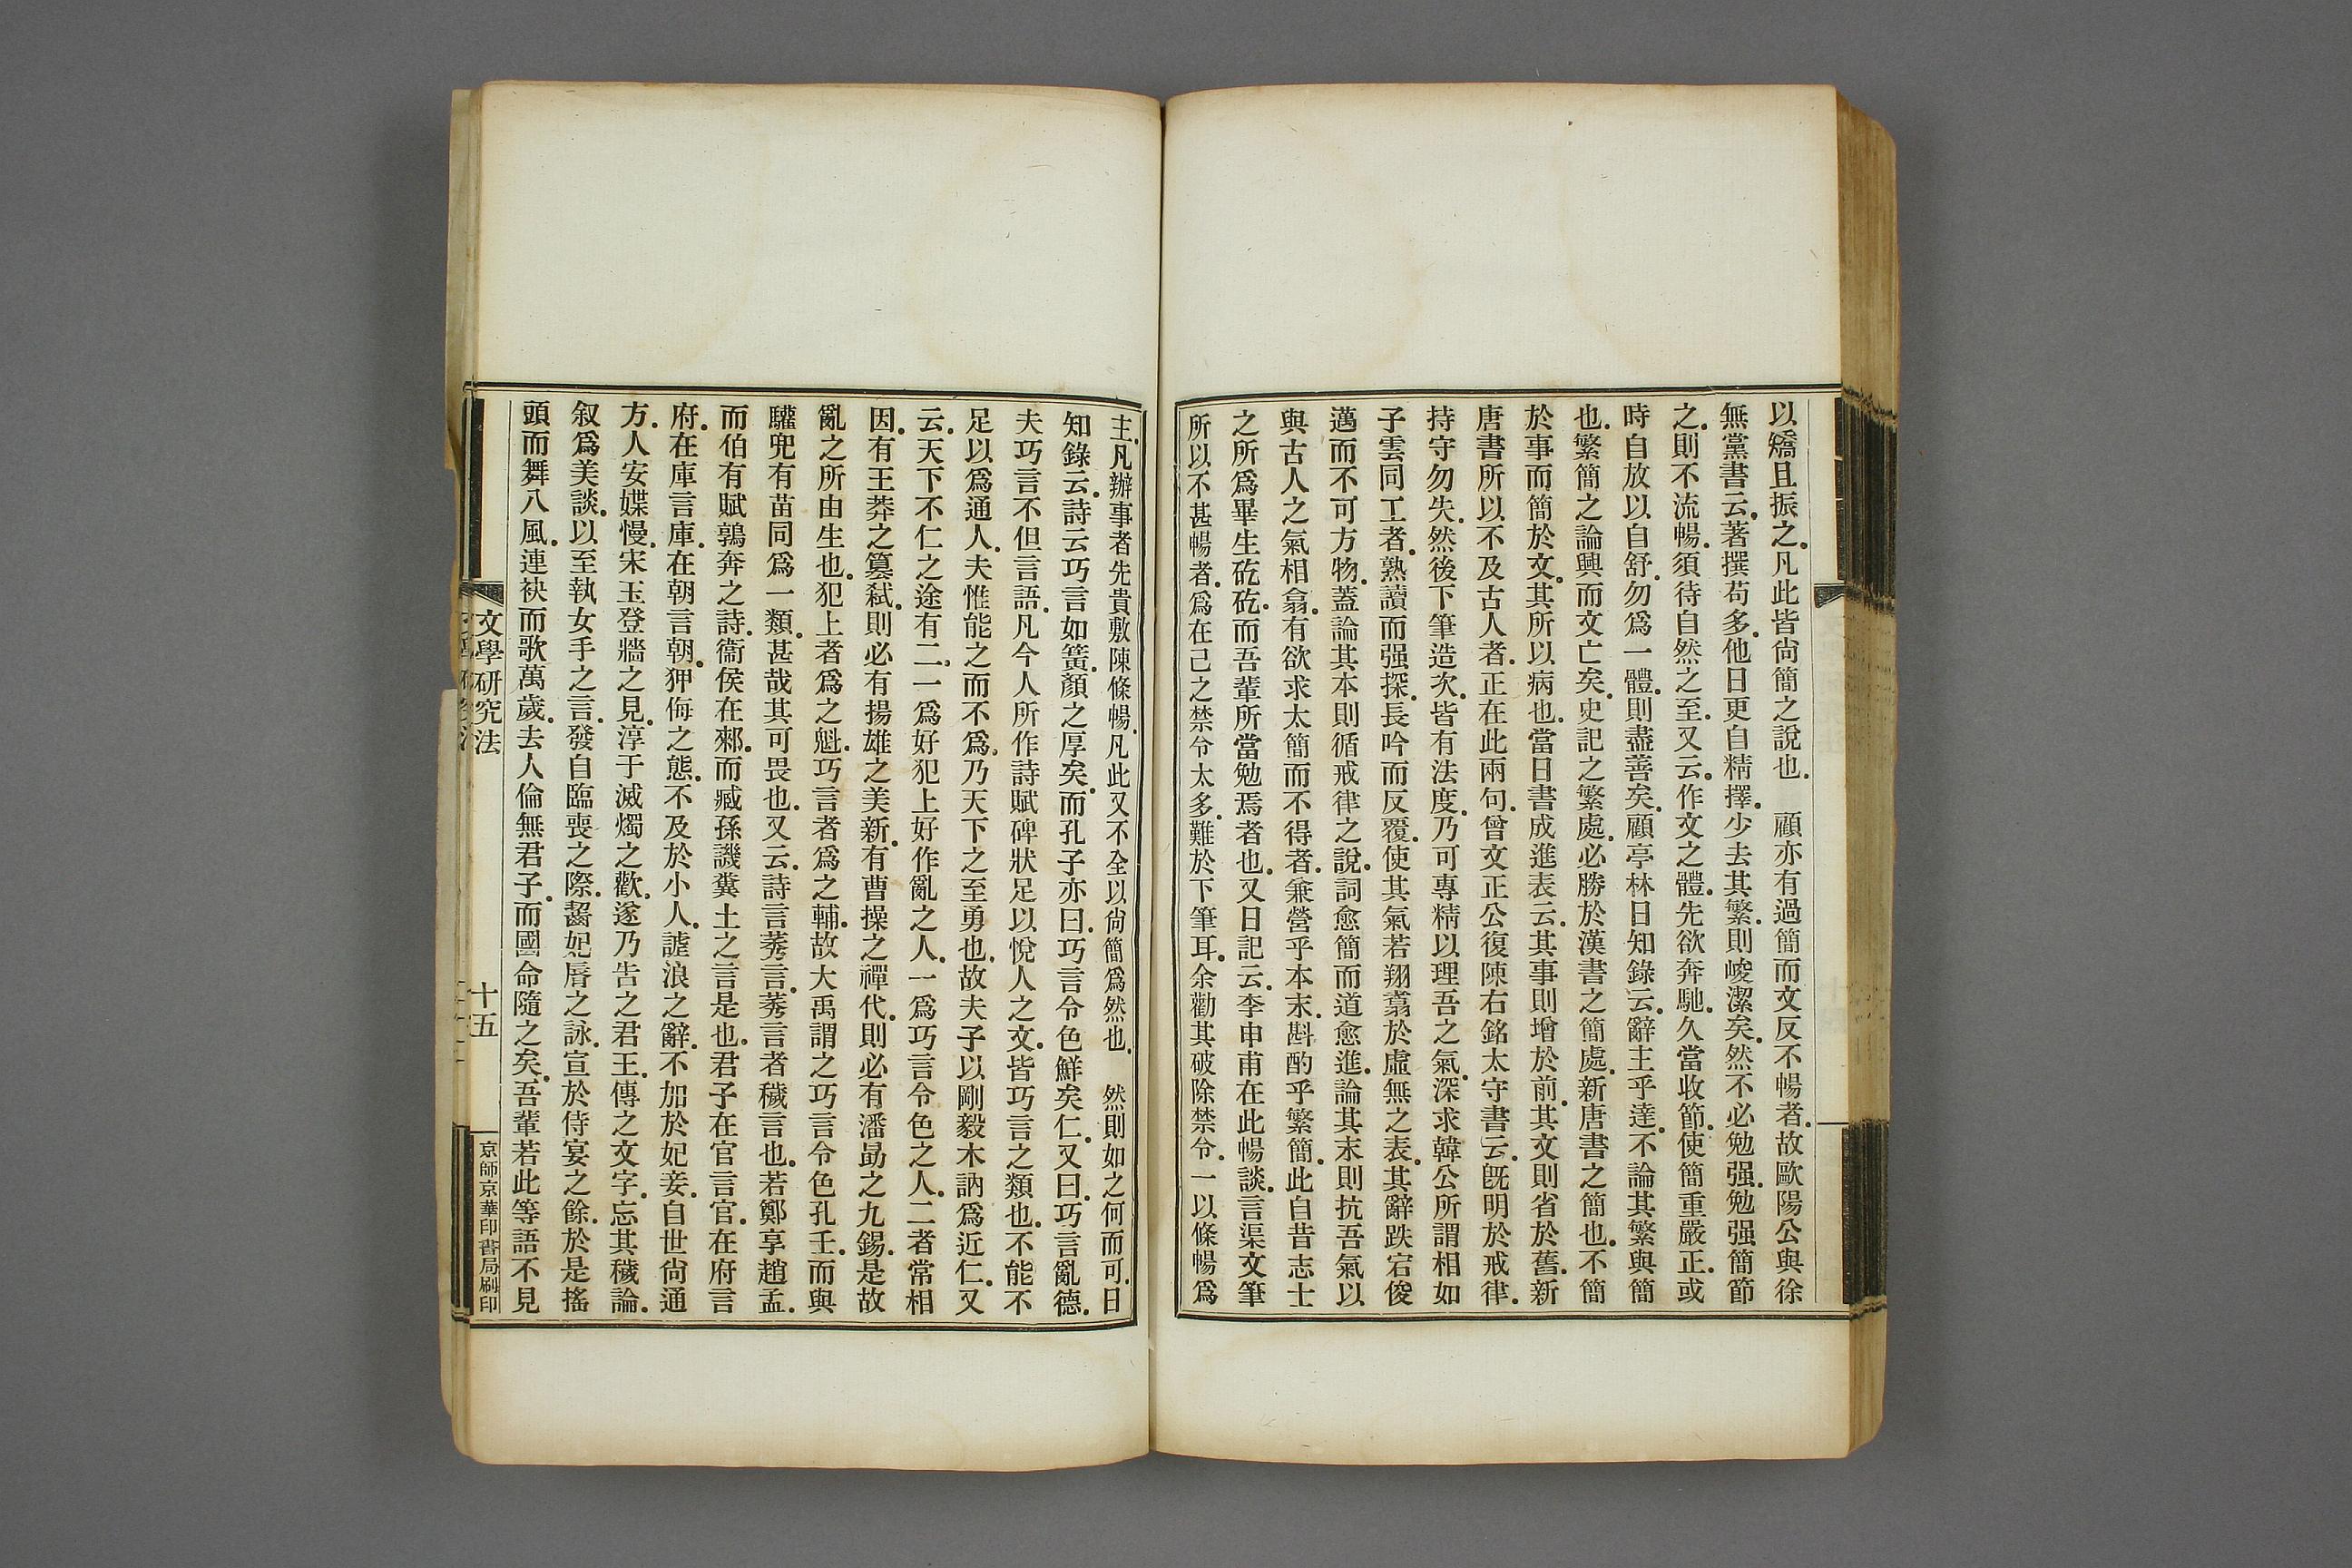 以矯且振之.凡此皆尙簡之說也.　顧亦有過簡而文反不暢者.故歐陽公與徐
無黨書云.著撰苟多.他日更自精擇.少去其繁.則峻潔矣.然不必勉强.勉强簡節
之.則不流暢.須待自然之至.又云.作文之體.先欲奔馳.久當收節.使簡重嚴正.或
時自放以自舒.勿爲一體.則盡善矣.顧亭林日知錄云.辭主乎達.不論其繁與簡
也.繁簡之論興而文亡矣.史記之繁處.必勝於漢書之簡處.新唐書之簡也.不簡
於事而簡於文.其所以病也.當日書成進表云.其事則增於前.其文則省於舊.新
唐書所以不及古人者.正在此兩句.曾文正公復陳右銘太守書云.旣明於戒律.
持守勿失.然後下筆造次.皆有法度.乃可專精以理吾之氣.深求韓公所謂相如
子雲同工者.熟讀而强探.長吟而反覆.使其氣若翔翥於虛無之表.其辭跌宕俊
邁而不可方物.蓋論其本則循戒律之說.詞愈簡而道愈進.論其末則抗吾氣以
與古人之氣相翕.有欲求太簡而不得者.兼營乎本末.斟酌乎繁簡.此自昔志士
之所爲畢生矻矻.而吾輩所當勉焉者也.又日記云.李申甫在此暢談.言渠文筆
所以不甚暢者.爲在己之禁令太多.難於下筆耳.余勸其破除禁令.一以條暢爲
主.凡辦事者先貴敷陳條暢.凡此又不全以尙簡爲然也.　然則如之何而可.日
知錄云.詩云巧言如簧.顏之厚矣.而孔子亦曰.巧言令色鮮矣仁.又曰.巧言亂德.
夫巧言不但言語.凡今人所作詩賦碑狀足以悅人之文.皆巧言之類也.不能不
足以爲通人.夫惟能之而不爲.乃天下之至勇也.故夫子以剛毅木訥爲近仁.又
云.天下不仁之途有二.一爲好犯上好作亂之人.一爲巧言令色之人.二者常相
因.有王莽之簒弒.則必有揚雄之美新.有曹操之禪代.則必有潘勗之九錫.是故
亂之所由生也.犯上者爲之魁.巧言者爲之輔.故大禹謂之巧言令色孔壬.而與
驩兜有苗同爲一類.甚哉其可畏也.又云.詩言莠言.莠言者穢言也.若鄭享趙孟.
而伯有賦鶉奔之詩.衞侯在郲.而臧孫譏糞土之言是也.君子在官言官.在府言
府.在庫言庫.在朝言朝.狎侮之態.不及於小人.謔浪之辭.不加於妃妾.自世尙通
方.人安媟慢.宋玉登牆之見.淳于滅燭之歡.遂乃告之君王.傳之文字.忘其穢論.
叙爲美談.以至執女手之言.發自臨喪之際.齧妃脣之詠.宣於侍宴之餘.於是搖
頭而舞八風.連袂而歌萬歲.去人倫無君子.而國命隨之矣.吾輩若此等語不見
文學硏究法
十五
京師京華印書局刷印